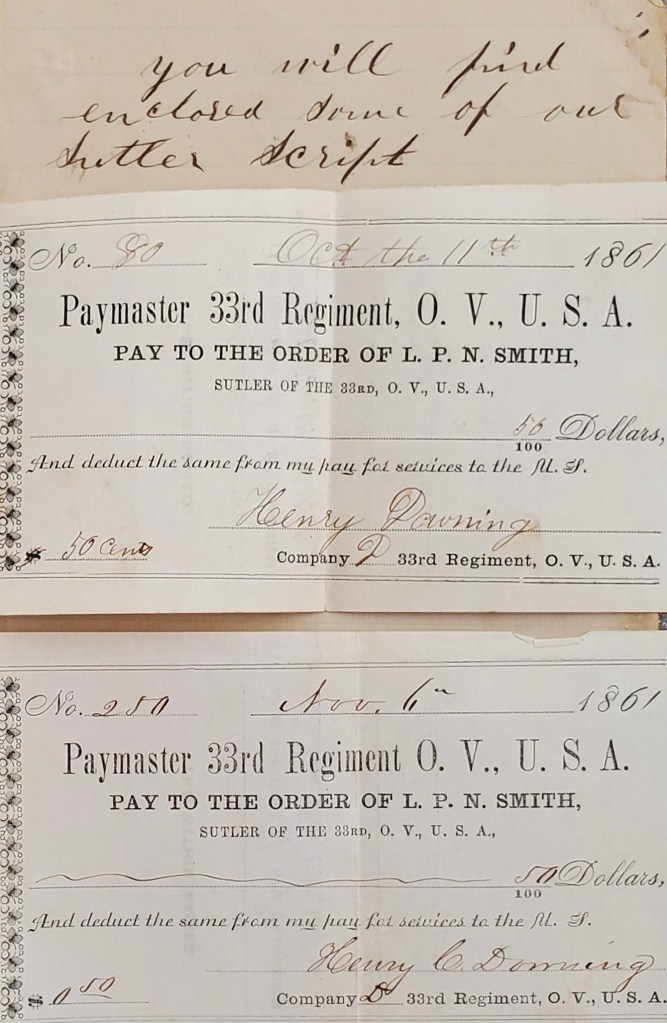 you will find
enclosed some of our
sutler script
No. 80 Oct the 11th 1861
Paymaster 33rd Regiment, O. V., U. S. A.
PAY TO THE ORDER OF L. P. N. SMITH,
SUTLER OF THE 33RD, O. V., U. S. A.,
50/100 Dollars,
And deduct the same from my pay for services to the U. S.
Henry Downing
$ 50 cents Company D 33rd Regiment, O. V., U. S. A.
No. 250 Nov. 6th 1861
Paymaster 33rd Regiment O. V., U. S. A.
PAY TO THE ORDER OF L. P. N. SMITH,
SUTLER OF THE 33RD, O. V., U. S. A.,
50/100 Dollars,
And deduct the same from my pay for services to the U. S.
Henry C. Downing
$ 0 50 Company D 33rd Regiment, O. V., U. S. A.